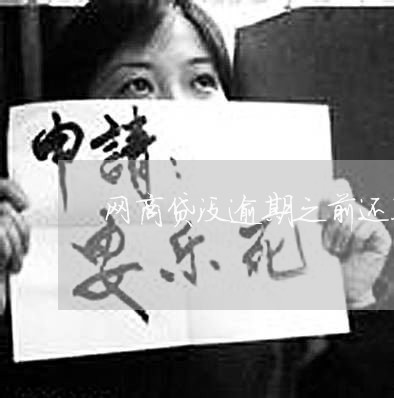 申請：
网商贷没逾期之前还
安乐死